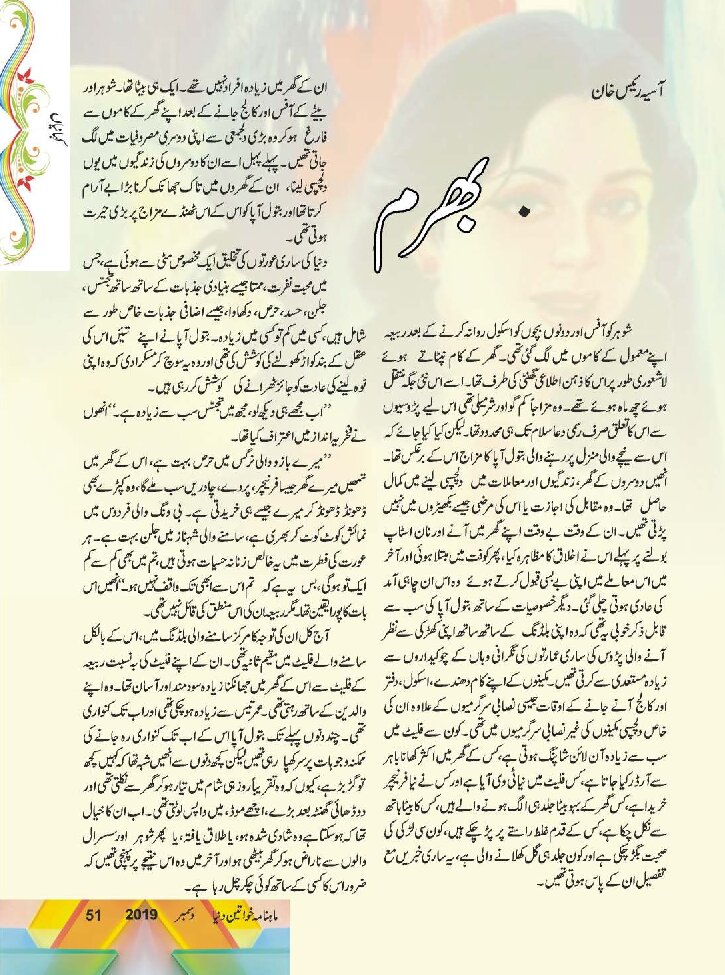 آسیہ رئیس خان
بھرم
شوہر کو آفس اور دونوں بچوں کو اسکول روانہ کرنے کے بعد ربیعہ
اپنے معمول کے کاموں میں لگ گئی تھی۔ گھر کے کام نپٹاتے ہوئے
لاشعوری طور پر اس کا ذہن اطلاعی گھنٹی کی طرف تھا۔ اسے اس نئی جگہ منتقل
ہوئے چھ ماہ ہوئے تھے۔ وہ مزاجاً کم گو اور شرمیلی تھی اس لیے پڑوسیوں
سے اس کا تعلق صرف رسمی دعا سلام تک ہی محدود تھا۔ لیکن کیا کیا جائے کہ
اس سے نیچے والی منزل پر رہنے والی بتول آپا کا مزاج اس کے برعکس تھا۔
انھیں دوسروں کے گھر، زندگیوں اور معاملات میں دلچسپی لینے میں کمال
حاصل تھا۔ وہ مقابل کی اجازت یا اس کی مرضی جیسے بکھیڑوں میں نہیں
پڑتی تھیں۔ ان کے وقت بے وقت اپنے گھر میں آنے اور نان اسٹاپ
بولنے پر پہلے اس نے اخلاق کا مظاہرہ کیا، پھر کوفت میں مبتلا ہوئی اور آخر
میں اس معاملے میں اپنی بے بسی قبول کرتے ہوئے وہ اس ان چاہی آمد
کی عادی ہوتی چلی گئی۔ دیگر خصوصیات کے ساتھ بتول آپا کی سب سے
قابل ذکر خوبی یہ تھی کہ وہ اپنی بلڈنگ کے ساتھ ساتھ اپنی کھڑکی سے نظر
آنے والی پڑوس کی ساری عمارتوں کی نگرانی وہاں کے چوکیداروں سے
زیادہ مستعدی سے کرتی تھیں۔ مکینوں کے اپنے کام دھندے، اسکول، دفتر
اور کالج آنے جانے کے اوقات جیسی نصابی سرگرمیوں کے علاوہ ان کی
خاص دلچسپی مکینوں کی غیر نصابی سرگرمیوں میں تھی۔ کون سے فلیٹ میں
سب سے زیادہ آن لائن شاپنگ ہوتی ہے، کس کے گھر میں اکثر کھانا باہر
سے آرڈر کیا جاتا ہے، کس فلیٹ میں نیا ٹی وی آیا ہے اور کس نے نیا فرنیچر
خریدا ہے، کس گھر کے بہو بیٹا جلد ہی الگ ہونے والے ہیں، کس کا بیٹا ہاتھ
سے نکل چکا ہے، کس کے قدم غلط راستے پر پڑ چکے ہیں، کون سی لڑکی کی
صحبت بگڑ چکی ہے اور کون جلد ہی گل کھلانے والی ہے، یہ ساری خبریں مع
تفصیل ان کے پاس ہوتی تھیں۔
ان کے گھر میں زیادہ افراد نہیں تھے۔ ایک ہی بیٹا تھا۔ شوہر اور
بیٹے کے آفس اور کالج جانے کے بعد اپنے گھر کے کاموں سے
فارغ ہو کر وہ بڑی دلجمعی سے اپنی دوسری مصروفیات میں لگ
جاتی تھیں۔ پہلے پہل اسے ان کا دوسروں کی زندگیوں میں یوں
دلچسپی لینا، ان کے گھروں میں تاک جھانک کرنا بڑا بے آرام
کرتا تھا اور بتول آپا کو اس کے اس ٹھنڈے مزاج پر بڑی حیرت
ہوتی تھی۔
دنیا کی ساری عورتوں کی تخلیق ایک مخصوص مٹی سے ہوئی ہے، جس
میں محبت نفرت، ممتا جیسے بنیادی جذبات کے ساتھ ساتھ تجسّس،
جلن، حسد، حرص، دکھاوا، جیسے اضافی جذبات خاص طور سے
شامل ہیں، کسی میں کم تو کسی میں زیادہ۔ بتول آپا نے اپنے تئیں اس کی
عقل کے بند کواڑ کھولنے کی کوشش کی تھی اور وہ یہ سوچ کر مسکرا دی کہ وہ اپنی
ٹوہ لینے کی عادت کو جائز ٹھہرانے کی کوشش کر رہی ہیں۔
’’اب مجھے ہی دیکھ لو، مجھ میں تجسّس سب سے زیادہ ہے۔‘‘ انھوں
نے فخریہ انداز میں اعتراف کیا تھا۔
’’میرے بازو والی نرگس میں حرص بہت ہے، اس کے گھر میں
تمھیں میرے گھر جیسا فرنیچر، پردے، چادریں سب ملے گا، وہ کپڑے بھی
ڈھونڈ ڈھونڈ کر میرے جیسے ہی خریدتی ہے۔ بی ونگ والی فردوس میں
نمائش کوٹ کوٹ کر بھری ہے، سامنے والی شہناز میں جلن بہت ہے۔ ہر
عورت کی فطرت میں یہ خالص زنانہ حسیات ہوتی ہیں، تم میں بھی کم سے کم
ایک تو ہوگی، بس یہ ہے کہ تم اس سے ابھی تک واقف نہیں ہو۔‘‘ انھیں اس
بات کا پورا یقین تھا۔ مگر ربیعہ ان کی اس منطق کی قائل نہیں تھی۔
آج کل ان کی توجہ کا مرکز سامنے والی بلڈنگ میں، اس کے بالکل
سامنے والے فلیٹ میں مقیم ثانیہ تھی۔ ان کے اپنے فلیٹ کی بہ نسبت ربیعہ
کے فلیٹ سے اس کے گھر میں جھانکنا زیادہ سود مند اور آسان تھا۔ وہ اپنے
والدین کے ساتھ رہتی تھی۔ عمر تیس سے زیادہ ہو چکی تھی اور اب تک کنواری
تھی۔ چند دنوں پہلے تک بتول آپا اس کے اب تک کنواری رہ جانے کی
ممکنہ وجوہات پر سر کھپا رہی تھیں لیکن کچھ دنوں سے انھیں شبہ تھا کہ کہیں کچھ
تو گڑبڑ ہے، کیوں کہ وہ تقریباً روز ہی شام میں تیار ہو کر گھر سے نکلتی تھی اور
دو ڈھائی گھنٹہ بعد بڑے، اچھے موڈ، میں واپس لوٹتی تھی۔ اب ان کا خیال
تھا کہ ہوسکتا ہے وہ شادی شدہ ہو، یا طلاق یافتہ، یا پھر شوہر اور سسرال
والوں سے ناراض ہو کر گھر بیٹھی ہو اور آخر میں وہ اس نتیجے پر پہنچی تھیں کہ
ضرور اس کا کسی کے ساتھ کوئی چکر چل رہا ہے۔
ماہنامہ خواتین دنیا دسمبر 2019 51